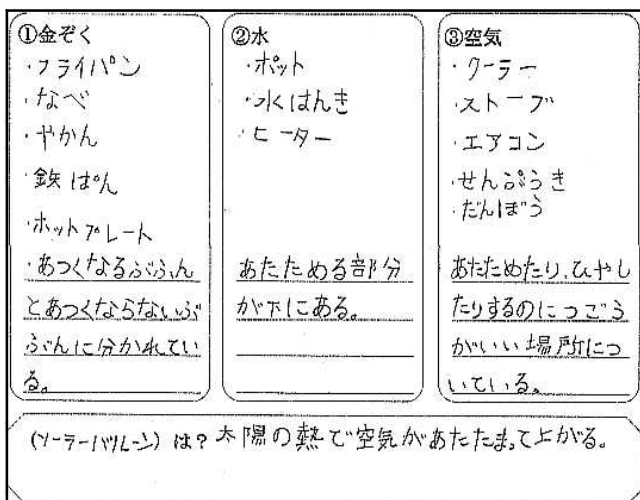 ①金ぞく
・フライパン
・なべ
・やかん
・鉄ぱん
・ホットプレート
・あつくなるぶぶん
とあつくならないぶ
ぶんに分かれてい
る。
②水
・ポット
・水はんき
・ヒーター
あたためる部分
が下にある。
③空気
・クーラー
・ストーブ
・エアコン
・せんぷうき
・だんぼう
あたためたり、ひやし
たりするのにつごう
がいい場所につ
いている。
(ソーラーバルーン)は?太陽の熱で空気があたたまって上がる。